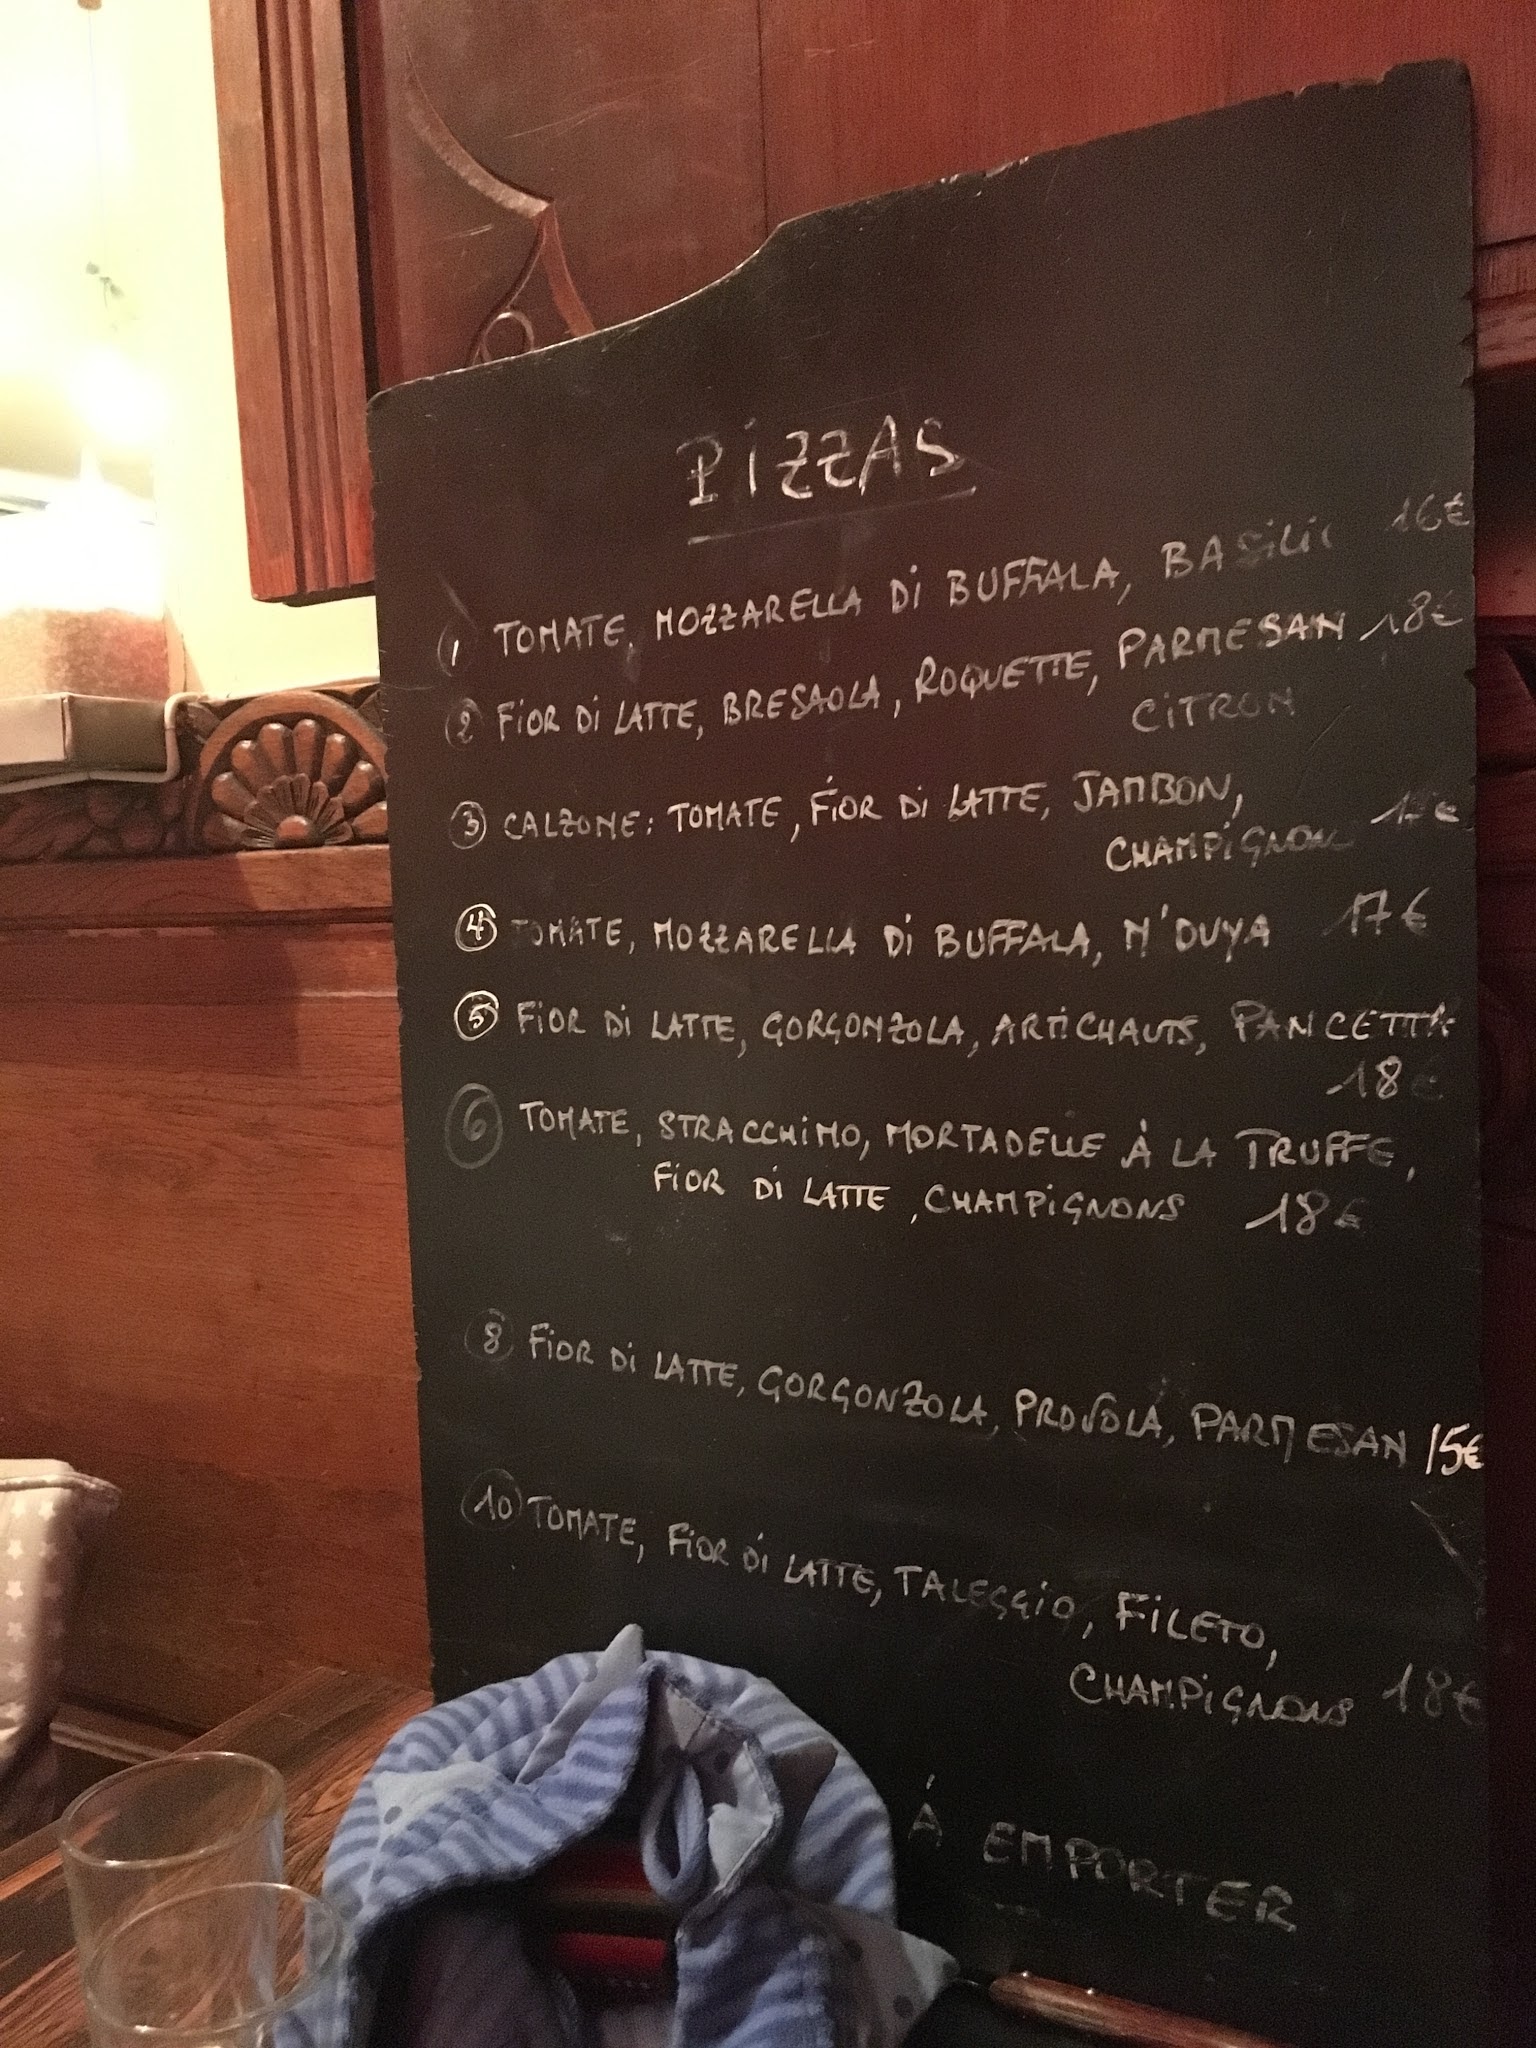 PIZZAS
1 TOMATE, MOZZARELLA DI BUFFALA, BASILIC 16€
2 FIOR DI LATTE, BRESAOLA, ROQUETTE, PARMESAN 18€
CITRON
3 CALZONE: TOMATE, FIOR DI LATTE, JAMBON,
CHAMPIGNON 17€
4 TOMATE, MOZZARELLA DI BUFFALA, N'DUYA 17€
5 FIOR DI LATTE, GORGONZOLA, ARTICHAUTS, PANCETTA
18€
6 TOMATE, STRACCHINO, MORTADELLE À LA TRUFFE,
FIOR DI LATTE, CHAMPIGNONS 18€
8 FIOR DI LATTE, GORGONZOLA, PROVOLA, PARMESAN 15€
10 TOMATE, FIOR DI LATTE, TALEGGIO, FILETO,
CHAMPIGNONS 18€
À EMPORTER